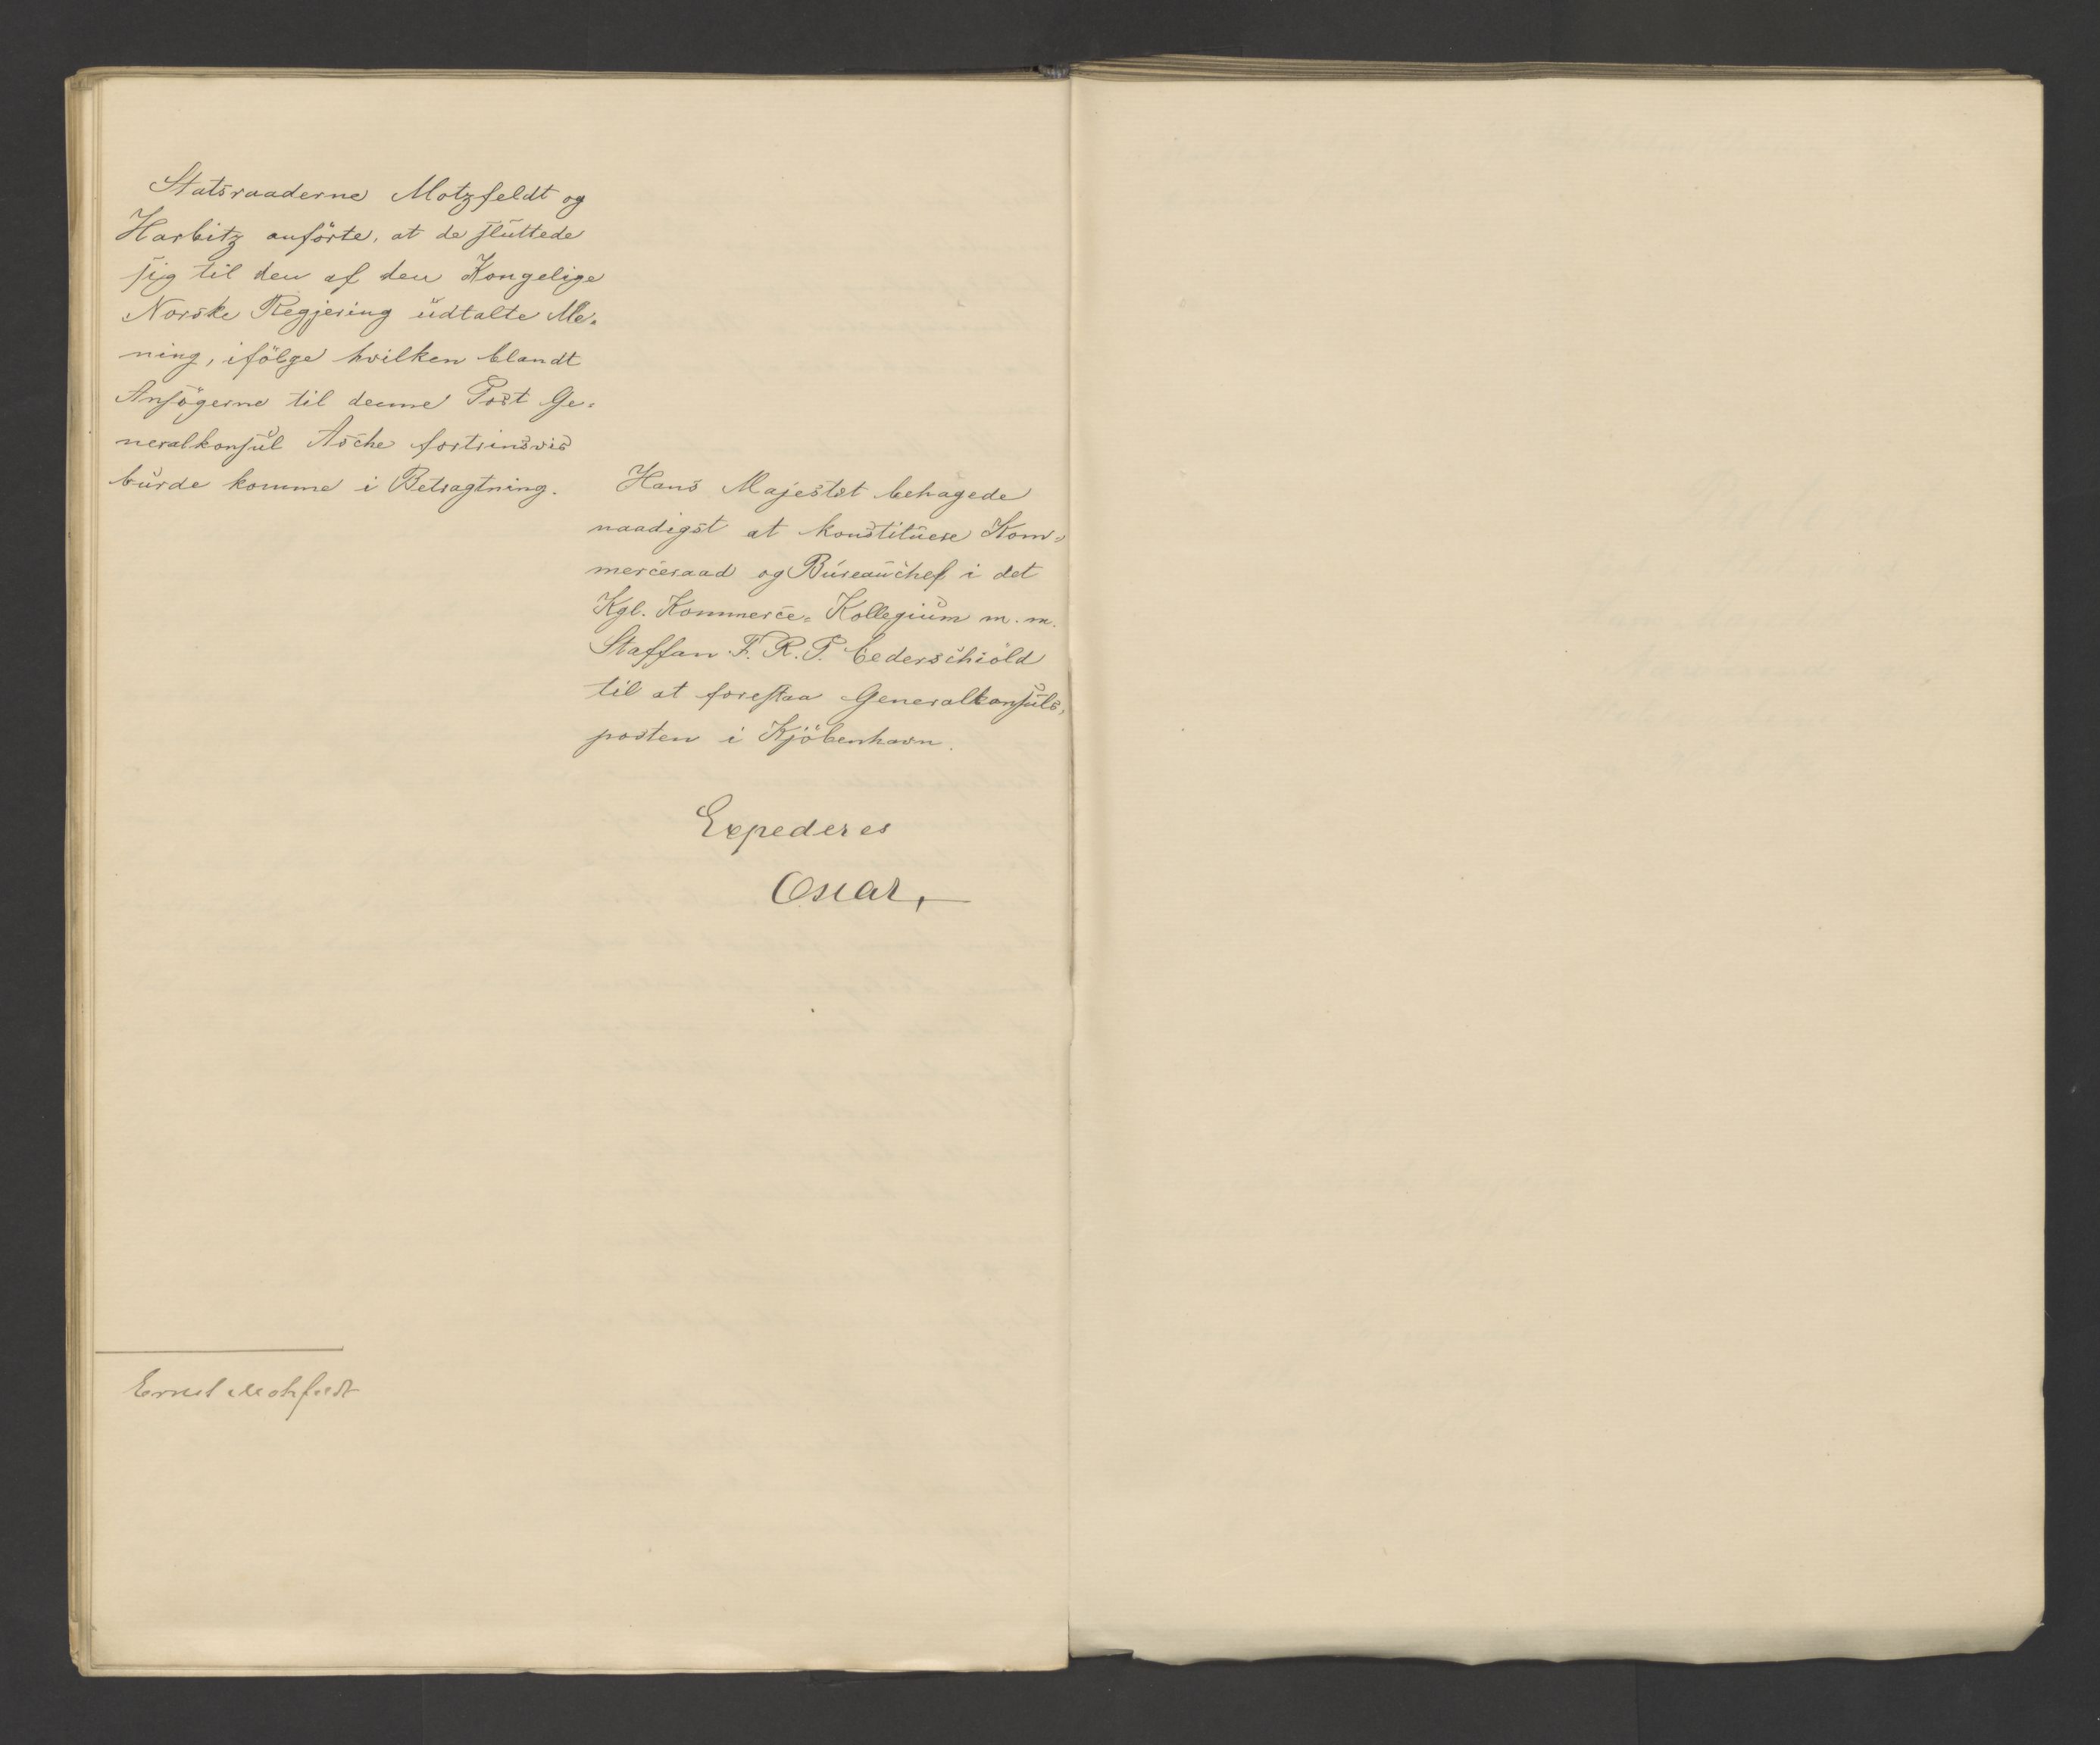 Statsraaderne Motzfeldt og
Harbitz anförte, at de sluttede
sig til den af den Kongelige
Norske Regjering udtalte Me=
ning, ifölge hvilken blandt
Ansögerne til denne Post Ge=
neralkonsul Asche fortrinsvis
burde komme i Betragtning.
Hans Majestæt behagede
naadigst at konstituere Kom=
merceraad og Bureauchef i det
Kgl. Kommerce=Kollegium m.m.
Staffan F. R. P. Cederschiöld
til at forestaa Generalkonsuls=
posten i Kjöbenhavn.
Expederes
Oscar.
Ernst Motzfeldt